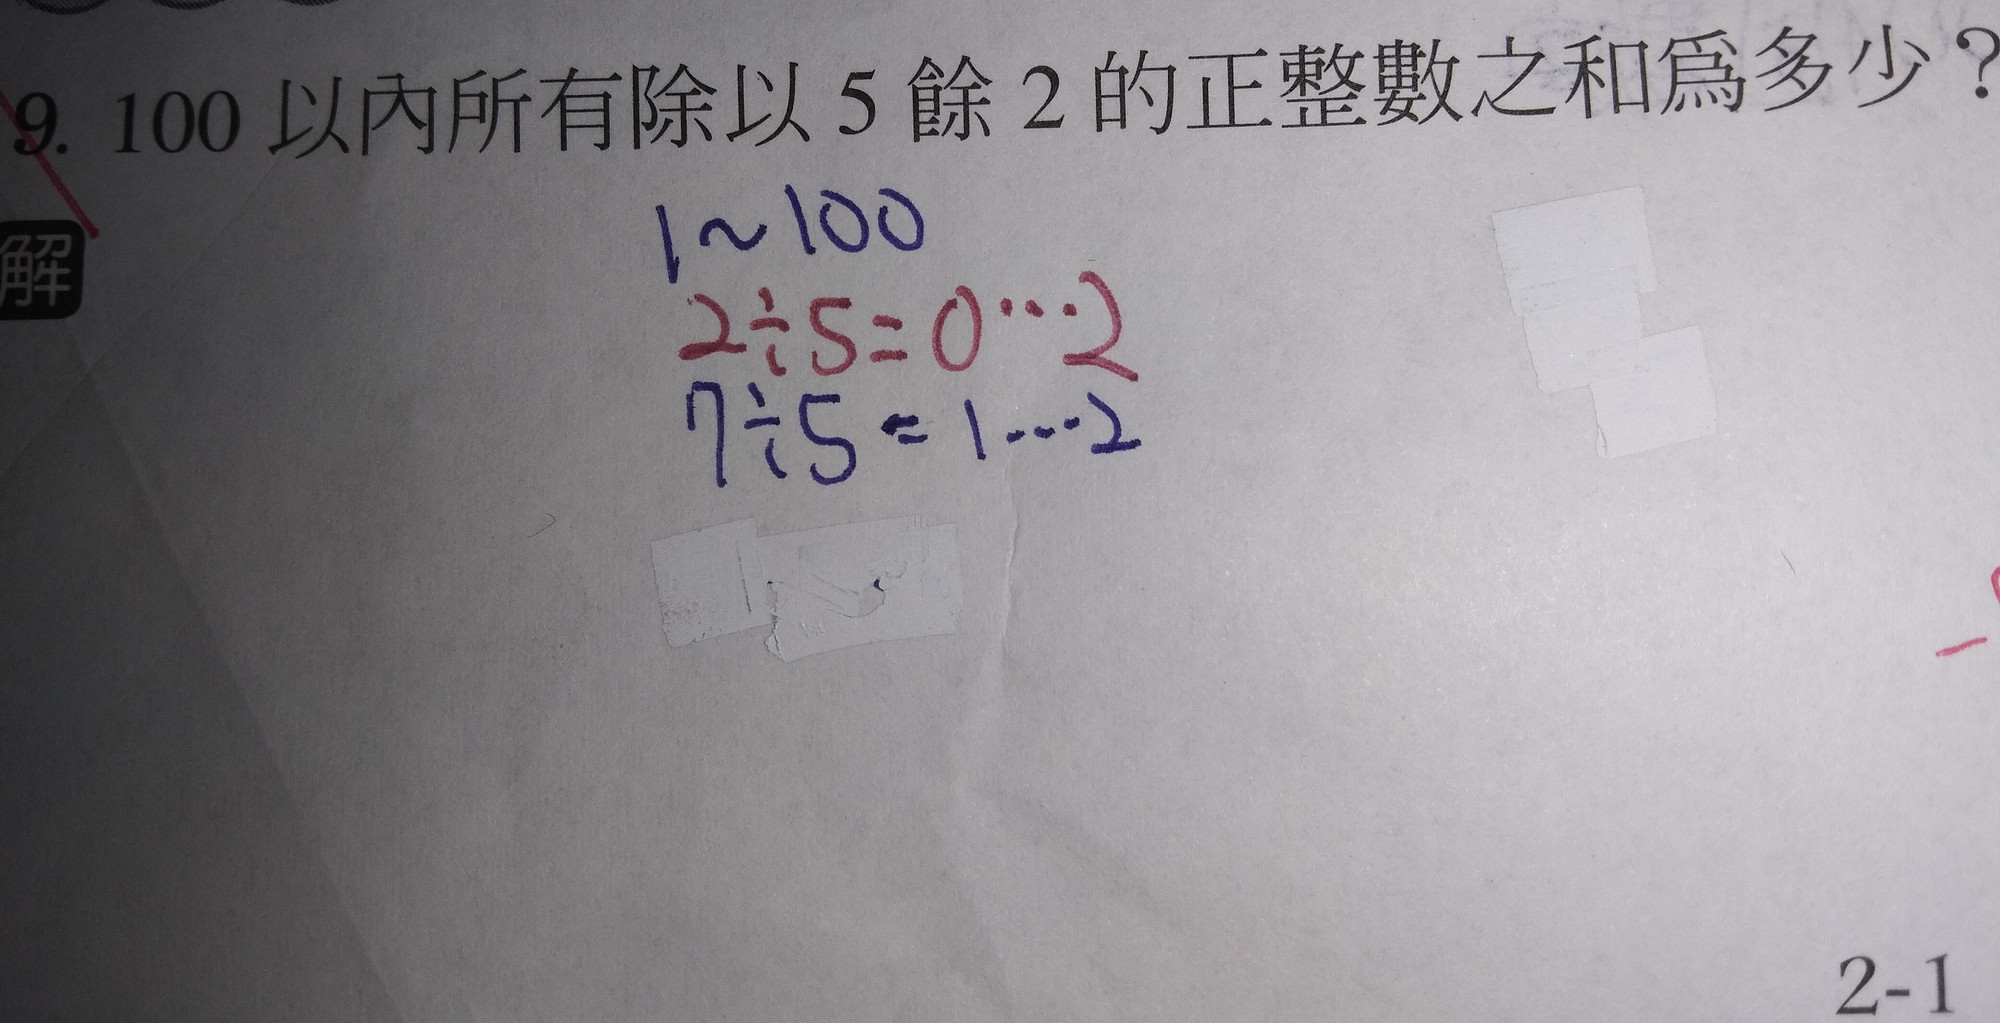 9. 100 以內所有除以 5 餘 2 的正整數之和為多少？
解
1~100
2÷5=0…2
7÷5=1…2
2-1